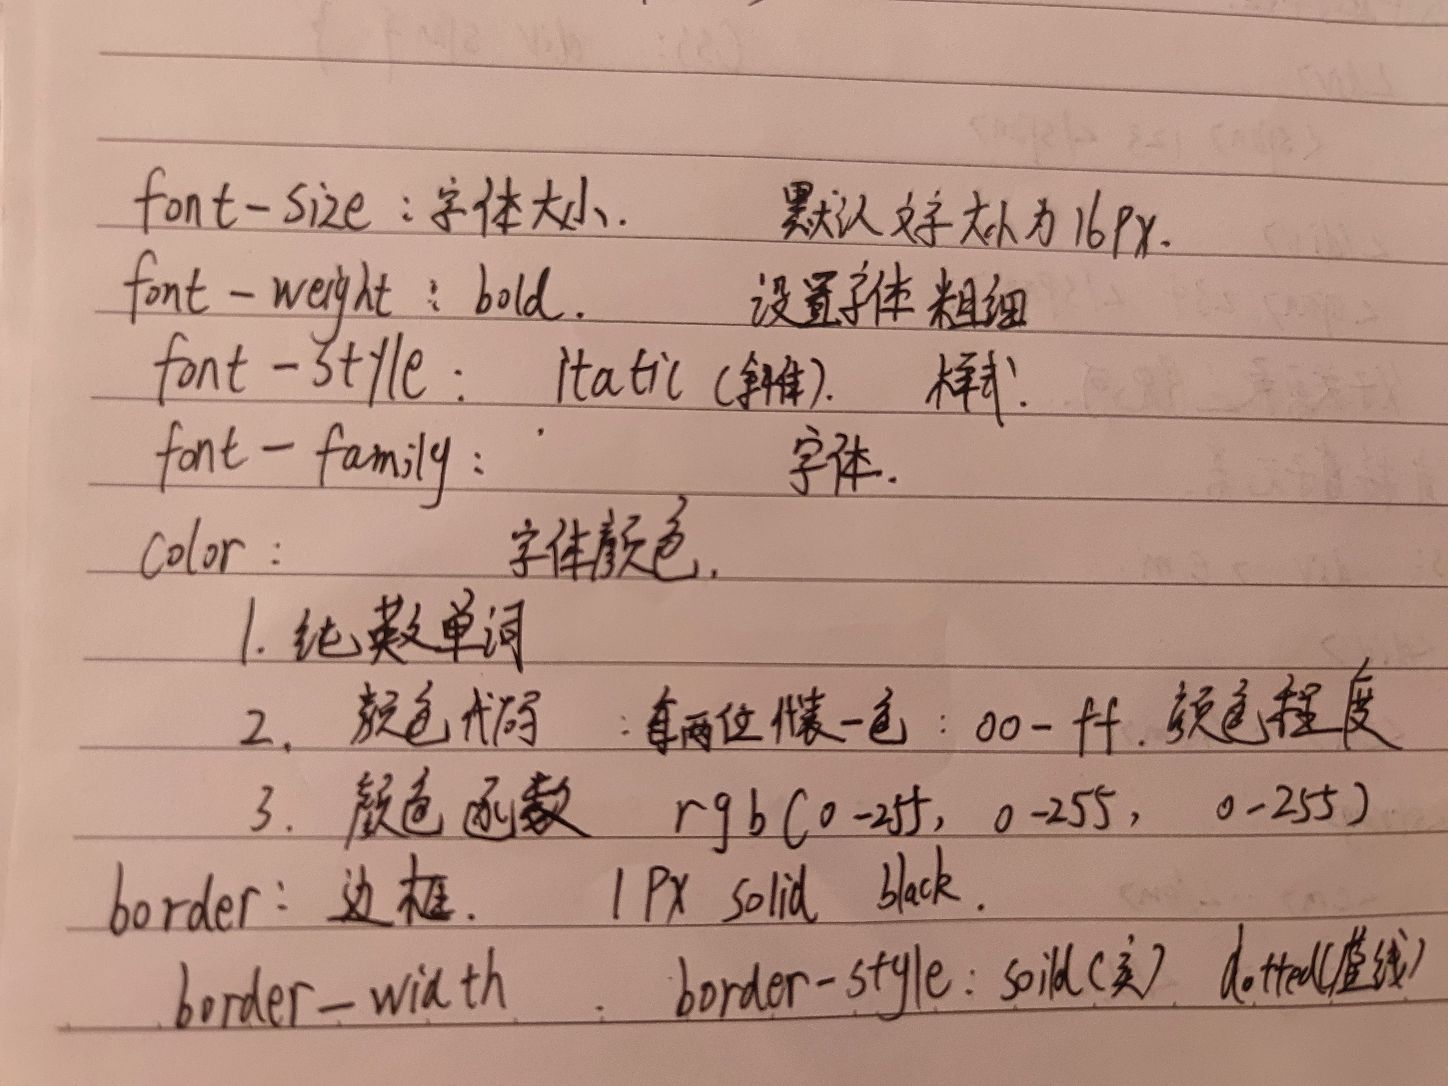 font-size : 字体大小. 默认文字大小为16px.
font-weight : bold. 设置字体粗细
font-style : itatic (斜体). 样式.
font-family : 字体.
color : 字体颜色.
1. 纯英文单词
2. 颜色代码 : 每两位代表一色 : 00-ff. 颜色程度
3. 颜色函数 rgb(0-255, 0-255, 0-255)
border : 边框. 1px solid black.
border-width . border-style : soild(实) dotted(虚线)